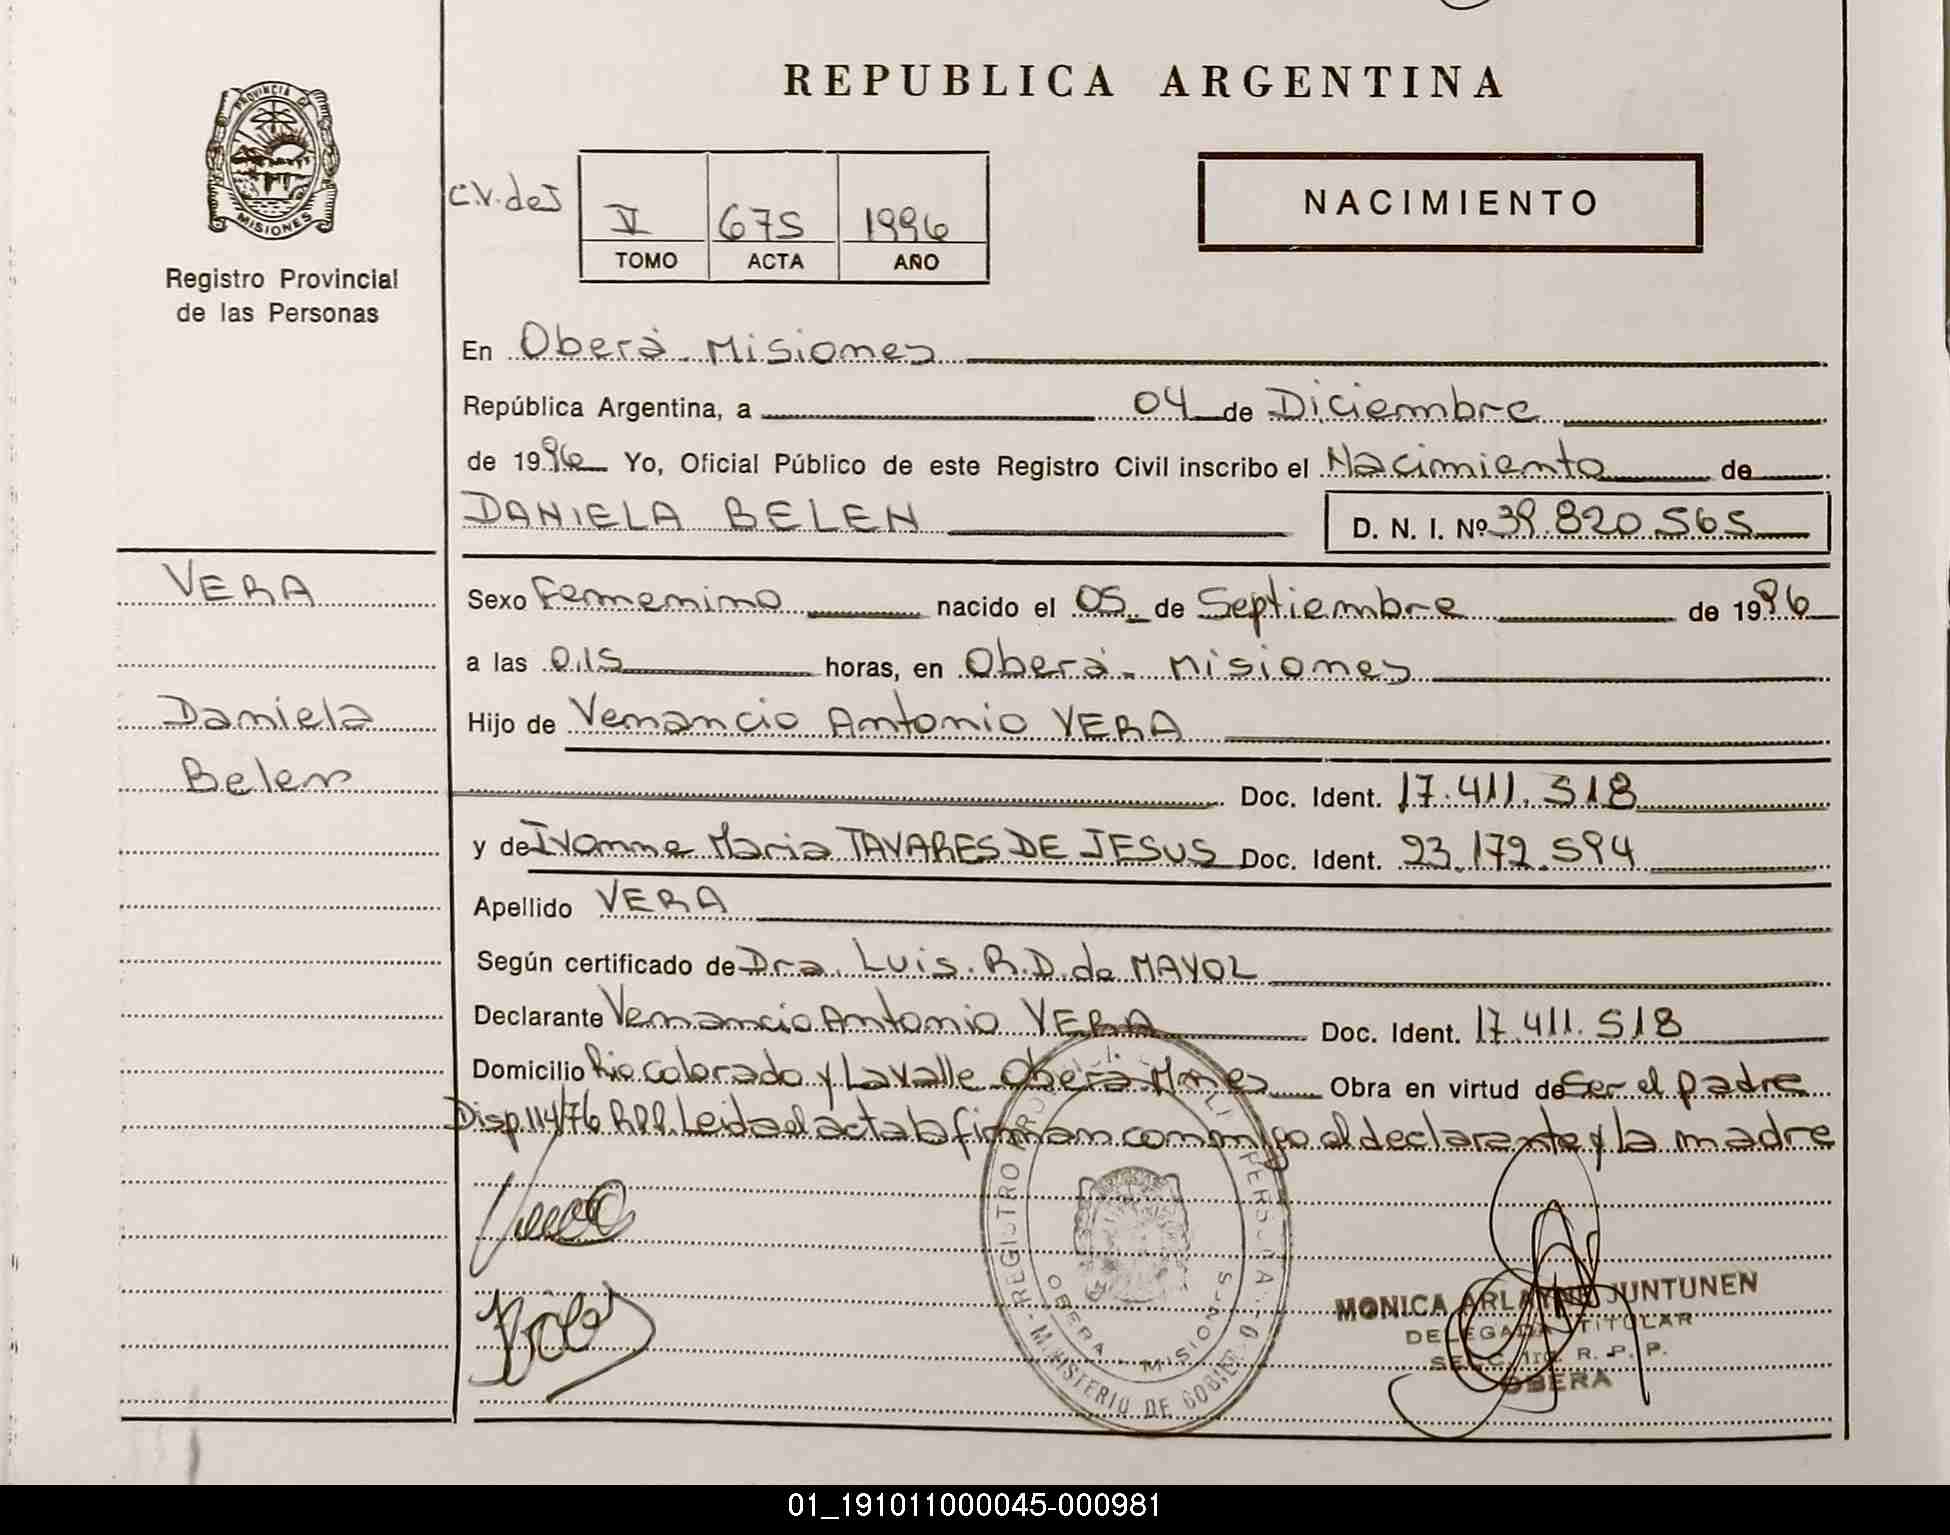 REPUBLICA ARGENTINA
PROVINCIA DE
MISIONES
Registro Provincial
de las Personas
C.V. de J
V 675 1996
TOMO ACTA AÑO
NACIMIENTO
En Oberá - Misiones
República Argentina, a 04 de Diciembre
de 1996 Yo, Oficial Público de este Registro Civil inscribo el Nacimiento de
DANIELA BELEN
D. N. I. Nº 39.820.565
VERA
Daniela
Belen
Sexo Femenino nacido el 05 de Septiembre de 1996
a las 0.15 horas, en Oberá - Misiones
Hijo de Venancio Antonio VERA
Doc. Ident. 17.411.518
y de Ivonne Maria TAVARES DE JESUS Doc. Ident. 23.172.594
Apellido VERA
Según certificado de Dra. Luis. R.D. de MAYOL
Declarante Venancio Antonio VERA Doc. Ident. 17.411.518
Domicilio Rio Colorado y Lavalle Oberá Mnes Obra en virtud de Ser el padre
Disp 114/76 RPP. Leida el acta la firman conmigo el declarante y la madre
REGISTRO
MINISTERIO DE GOBIERNO
OBERA - MISIONES
MONICA ARLAYNE JUNTUNEN
DELEGADA TITULAR
SECC. 1ra. R. P. P.
OBERA
01_191011000045-000981